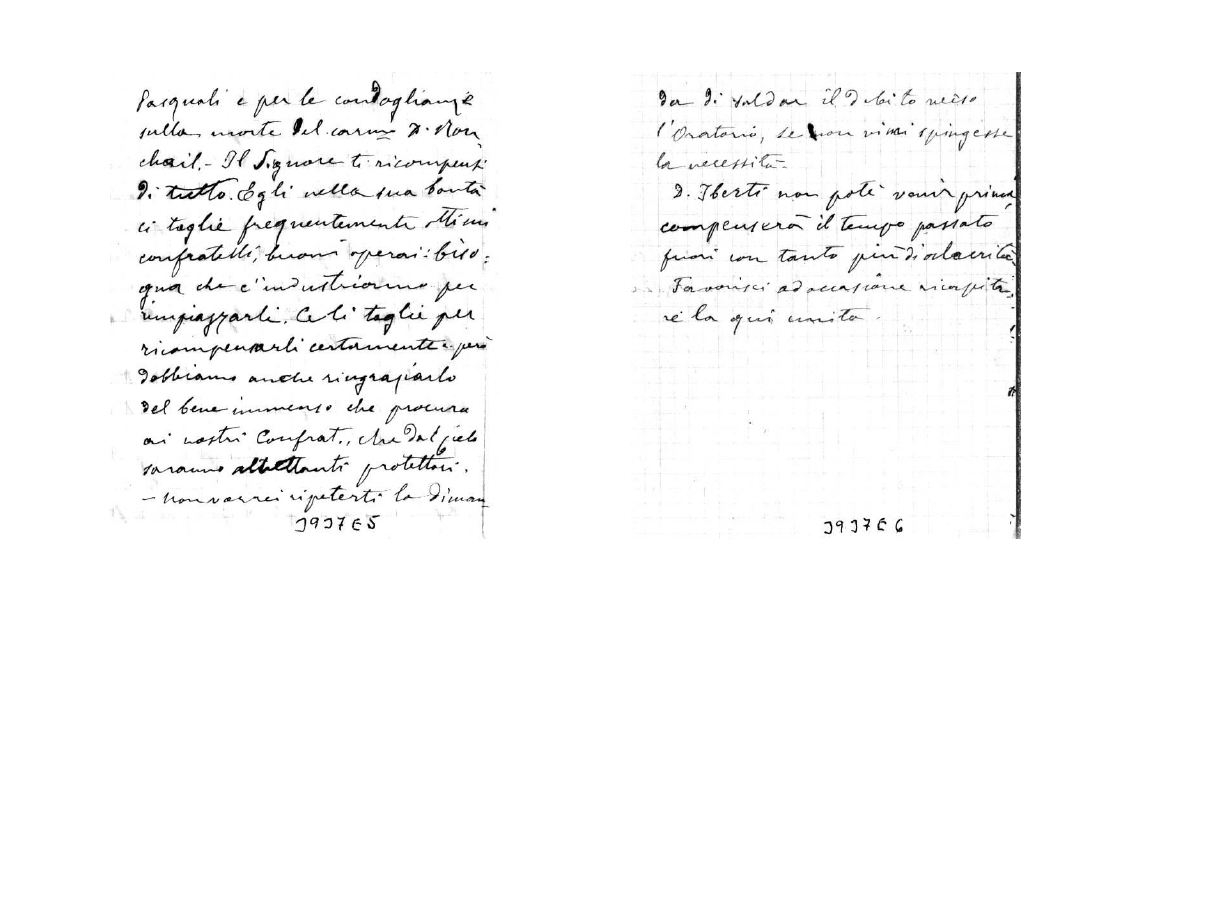 Pasquali e per le condoglianze
sulla morte del carmo D. Ron
chail. - Il Signore ti ricompensi
di tutto. Egli nella sua bontà
ci toglie frequentemente ottimi
confratelli, buoni operai: biso:
gna che c'industriamo per
rimpiazzarli. Ce li toglie per
ricompensarli certamente e però
dobbiamo anche ringraziarlo
del bene immenso che procura
ai nostri Confrat., che dal cielo
saranno altrettanti protettori.
- Non vorrei ripeterti la diman
3937E5
da di saldar il debito verso
l'Oratorio, se non vi mi spingesse
la necessità.
D. Iberti non potè venir prima,
compenserà il tempo passato
fuori con tanto più di alacrità.
Favorisci ad occasione ricapita,
re la qui unita.
3937E6